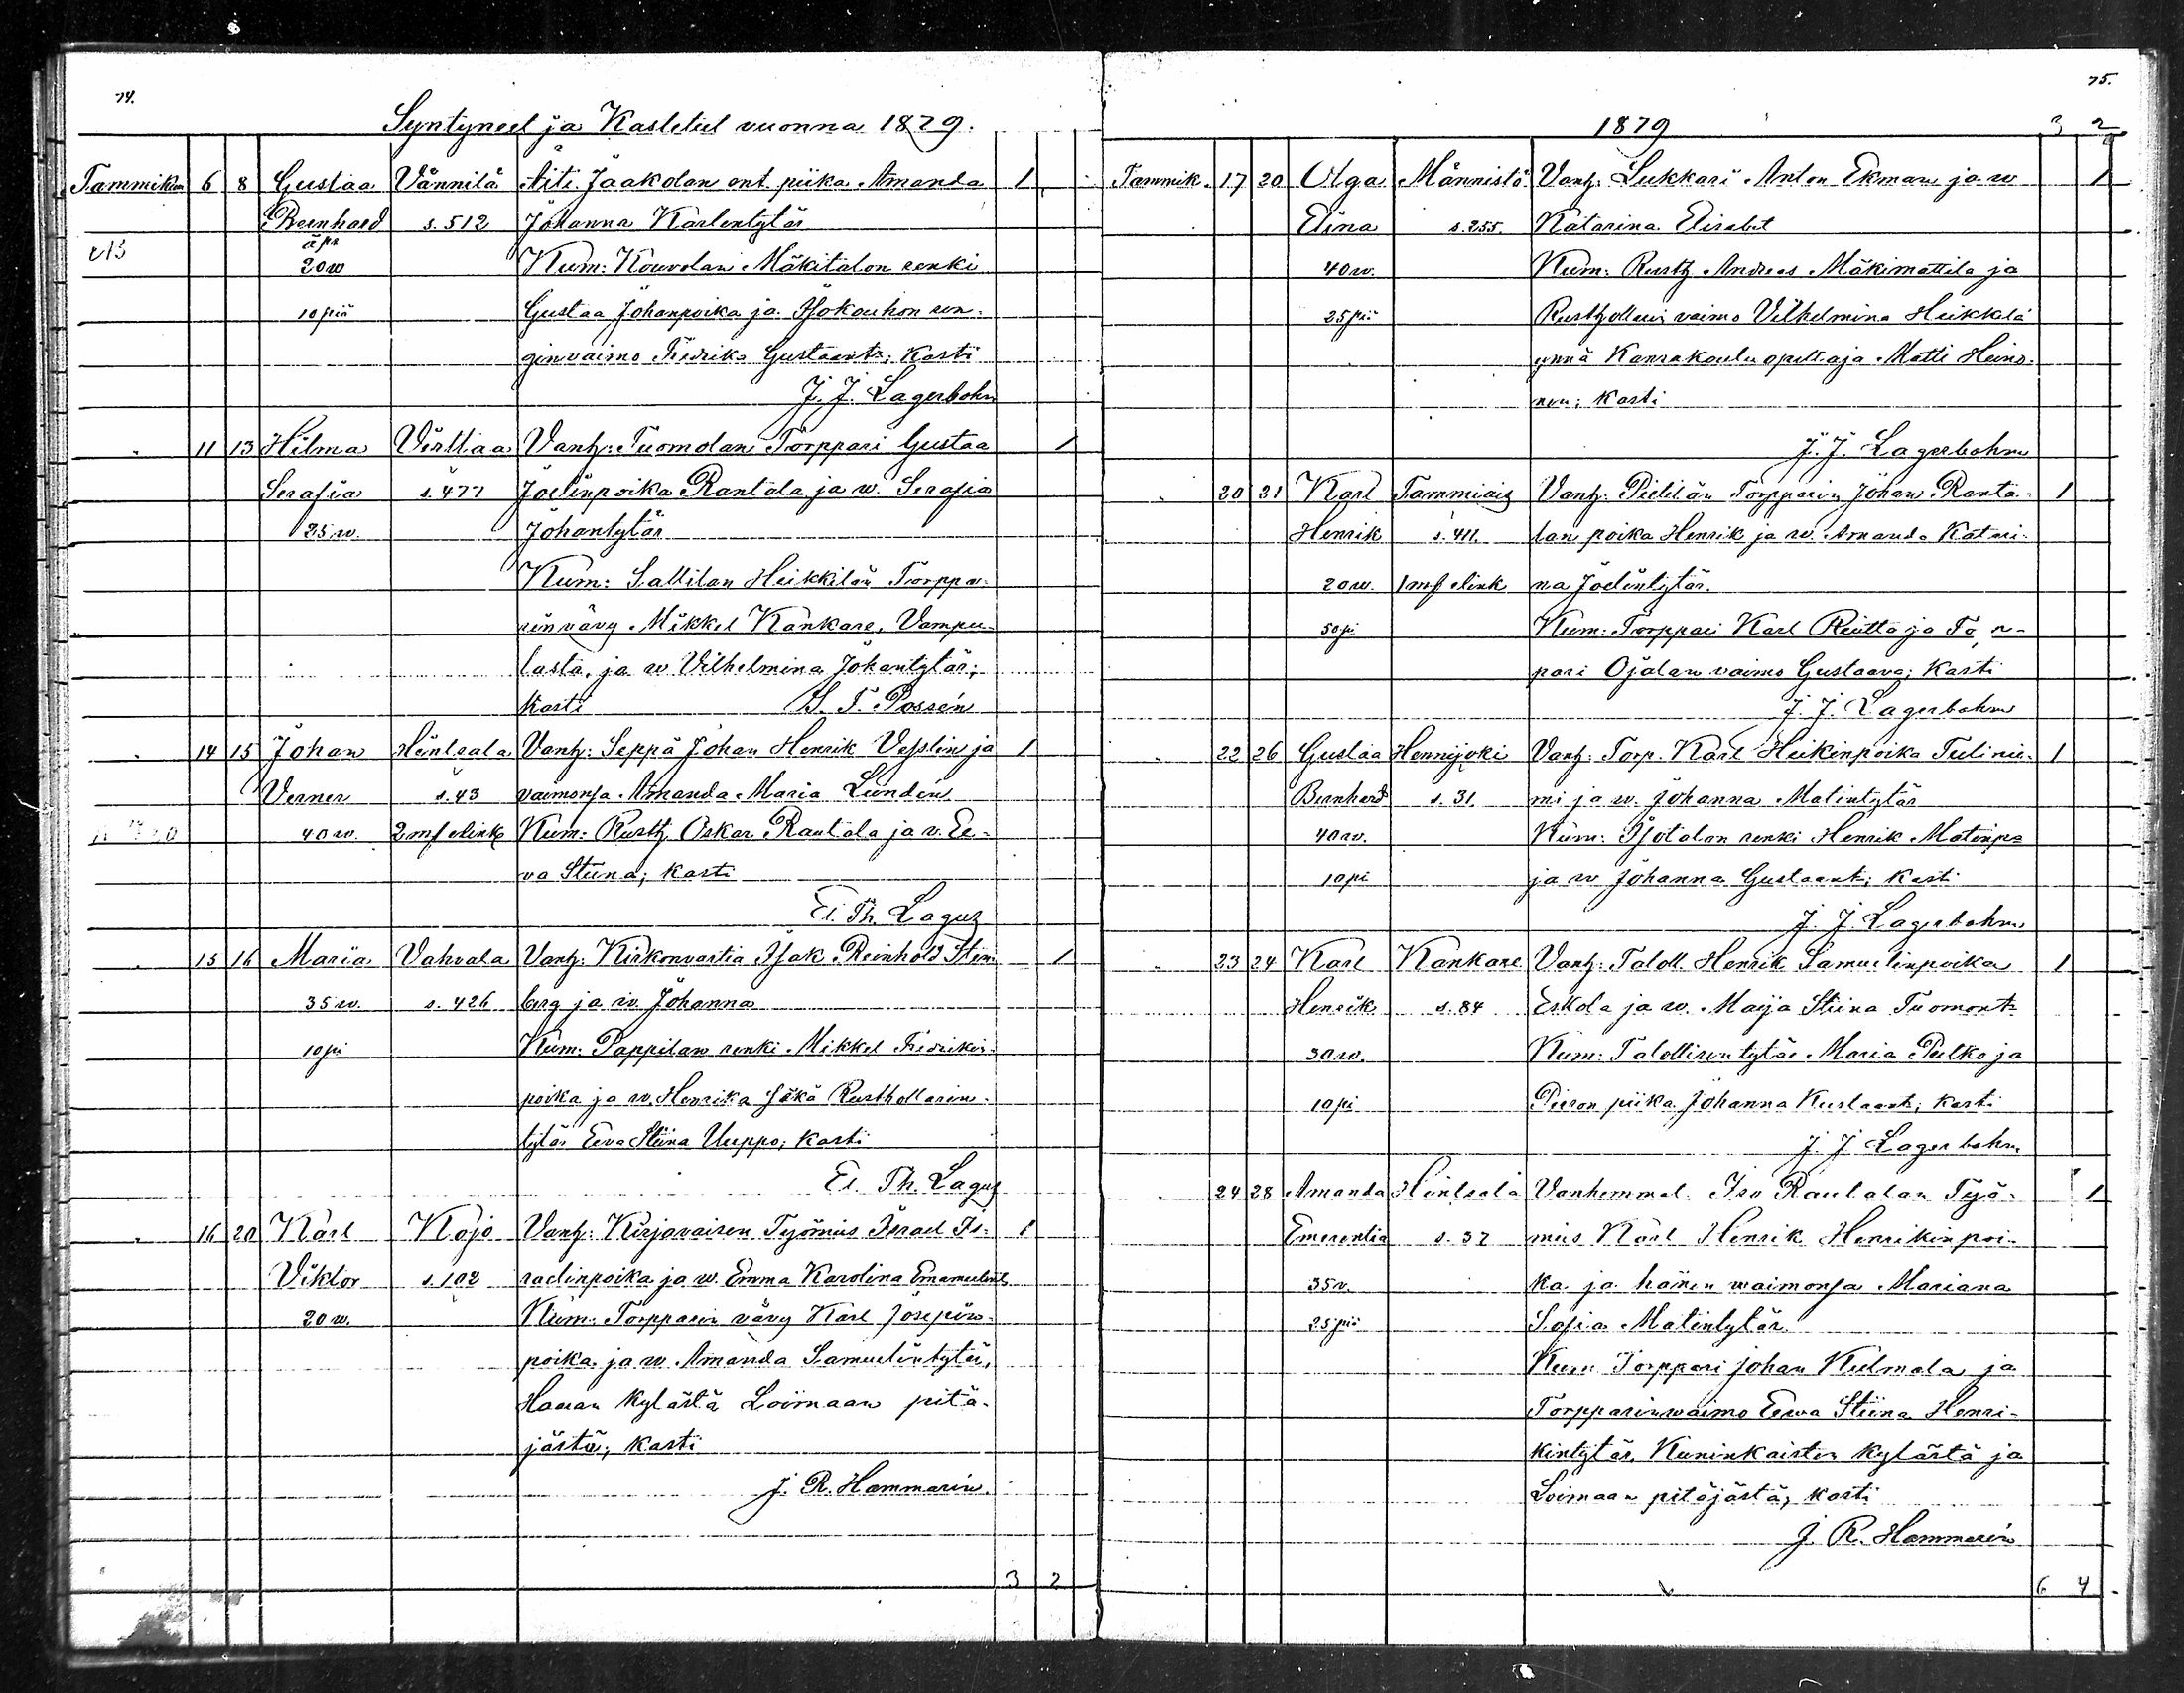 74.
Syntyneet ja Kastetut vuonna 1879.
Tammikuu 6 8 Gustaa Vännilä Äiti: Jaakolan ent. piika Amanda 1
Bernhard s. 512 Johanna Karlentytär
äpr
20 w Kum: Kouvolan Mäkitalon renki
10 piä Gustaa Johanpoika ja Isokouhon ren-
ginvaimo Fredrika Gustaant:; Kasti
J. J. Lagerbohm
" 11 13 Hilma Virttaa Vanh: Tuomolan Torppari Gustaa 1
Serafia s. 477 Joelinpoika Rantala ja w. Serafia
25 w. Johantytär
Kum: Sallilan Heikkilän Torppa-
rinvävy Mikkel Kankare, Vampu-
lasta, ja w. Vilhelmina Johantytär;
Kasti
" 14 15 Johan Heintsala Vanh: Seppä Johan Henrik Veslin ja 1
Verner s. 43 vaimonsa Amanda Maria Lundén
40 w. 2 mf Kum: Rusth. Oskar Rautala ja v. Ee-
va Stiina; kasti
El. Th. Lagus
" 15 16 Maria Vahvala Vanh: Kirkonvartia Isak Reinhold Sten- 1
35 w. s. 426 berg ja w. Johanna
10 pi Kum: Pappilan renki Mikkel Fredrikin-
poika ja w. Henrika sekä Rusthollarin-
tytär Eeva Stiina Uuppo; kasti
El. Th. Lagus
" 16 20 Karl Kojo Vanh: Kirjavaisen Työmies Israel Is- 1
Viktor s. 102 raelinpoika ja w. Emma Karolina
20 w. Kum: Torpparin vävy Karl Josepin-
poika ja w. Amanda Samuelintytär,
Haaran Kylästä Loimaan pitä-
jästä; kasti
J. R. Hammarén.
3 2
75.
1879 3 2
Tammik. 17 20 Olga Männistö Vanh: Lukkari Anton Ekman ja w 1
Elina s. 255. Katarina Elisabet
40 w. Kum: Rusth. Andreas Mäkimattila ja
25 pi Rusthollarin vaimo Vilhelmina Heikkilä
ynnä Kansakoulu opettaja Matti Heino-
nen; kasti
J. J. Lagerbohm
" 20 21 Karl Tammiais Vanh: Torpparin Johan Ranta- 1
Henrik s. 411. lan poika Henrik ja w. Amanda Katari-
20 w. 1 mf na Joelintytär.
50 pi Kum: Torppari Karl Reutta ja Torp-
pari Ojalan vaimo Gustaava; Kasti
J. J. Lagerbohm
" 22 26 Gustaa Hennijoki Vanh: Torp. Karl Heikinpoika Tulinie- 1
Bernhard s. 31. mi ja w. Johanna Matintytär
40 w. Kum: Isotalon renki Henrik Matinp:
10 pi ja w Johanna Gustaant:; kasti
J. J. Lagerbohm
" 23 24 Karl Kankare Vanh: Taloll. Henrik Samuelinpoika 1
Henrik s. 84 Eskola ja w. Maija Stiina Tuomont:
30 w. Kum: Talollisentytär Maria Pulko ja
10 pi piika Johanna Kustaant:; kasti
J. J Lagerbohm
" 24 28 Amanda Heintsala Vanhemmat: Iso Rautalan Työ- 1
Emerentia s. 37 mies Karl Henrik Henrikinpoi-
35 v. ka ja hänen waimonsa Mariana
25 pi Sofia Matintytär.
Kum Torppari Johan Kulmala ja
Torpparinwaimo Eewa Stiina Henri-
kintytär, Kuninkaisten kylästä ja
Loimaan pitäjästä; kasti
J. R. Hammarén
6 4